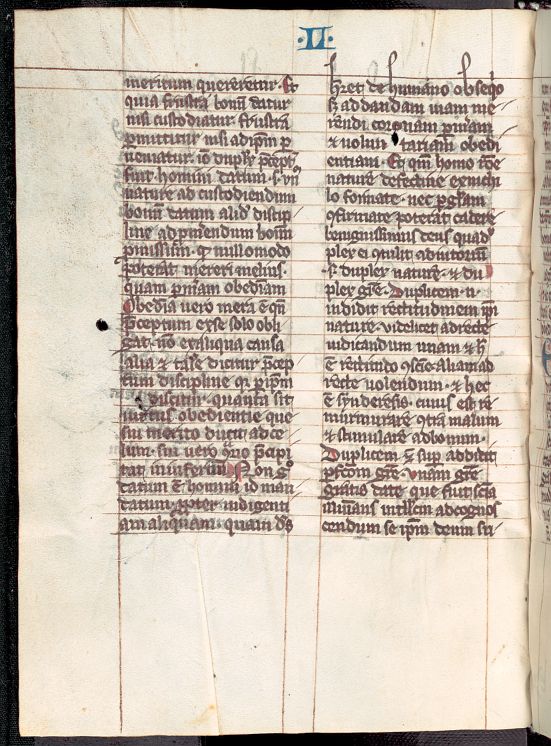 ·II·
meritum quereretur. Et
quia frustra bonū datur
nisi custodiatur. frustra
ꝓmittitur nisi adipm̄ ꝑ
ueniatur. iō duplex p̄ceptū
fuit homini datum. s. unū
nature ad custodiendum
bonū datum. aliđ discip
line ad ꝓmerendum bonū
ꝓmissum. qđ nullo modo
poterat mereri melius.
quam ꝑ meram obediam
Obedia uero mera ē qn̄
p̄ceptum ex se solo obli
gat. nō ex aliqua causa
alia ⁊ tale dicitur p̄cep
tum discipline qꝛ ꝑ ip̄m
discitur. quanta sit
uirtus obedientie que
sui merito ducit ad ce
lum. sui uero 9rio p̄cipi
tat in infernū. Non gͦ
datum ē homini id man
datum. ꝓpter indigenti
am aliquam. quam ds̄
h̄ret de humano obseqͦo
s̄ ad dandam uiam me
rendi coronam ꝑ meram
⁊ uolun tariam obedi
entiam. Et qm̄ homo rōe
nature defectiue ex nichi
lo formate. nec ꝑ gl̄am
9firmate poterat cadere
benignissimus deus quadͮ
plex ei 9tulit adiutoriū
s. duplex nature. ⁊ du
plex gr̄e. Duplicem .n.
indidit rectitudinem ip̄i
nature. videlicet ad recte
iudicandum unam ⁊ h̄
ē rectitudo 9scie. aliam ad
recte uolendum. ⁊ hec
ē synderesis. cuius est re
murmurare 9tra malum
⁊ stimulare ad bonum.
Duplicem ē sup̄ addidit
ꝑfc̄om gr̄e. vnam gr̄e
gratis date que fuit scīa
illumīans intllc̄m ad cognos
cendum se ip̄m deum su